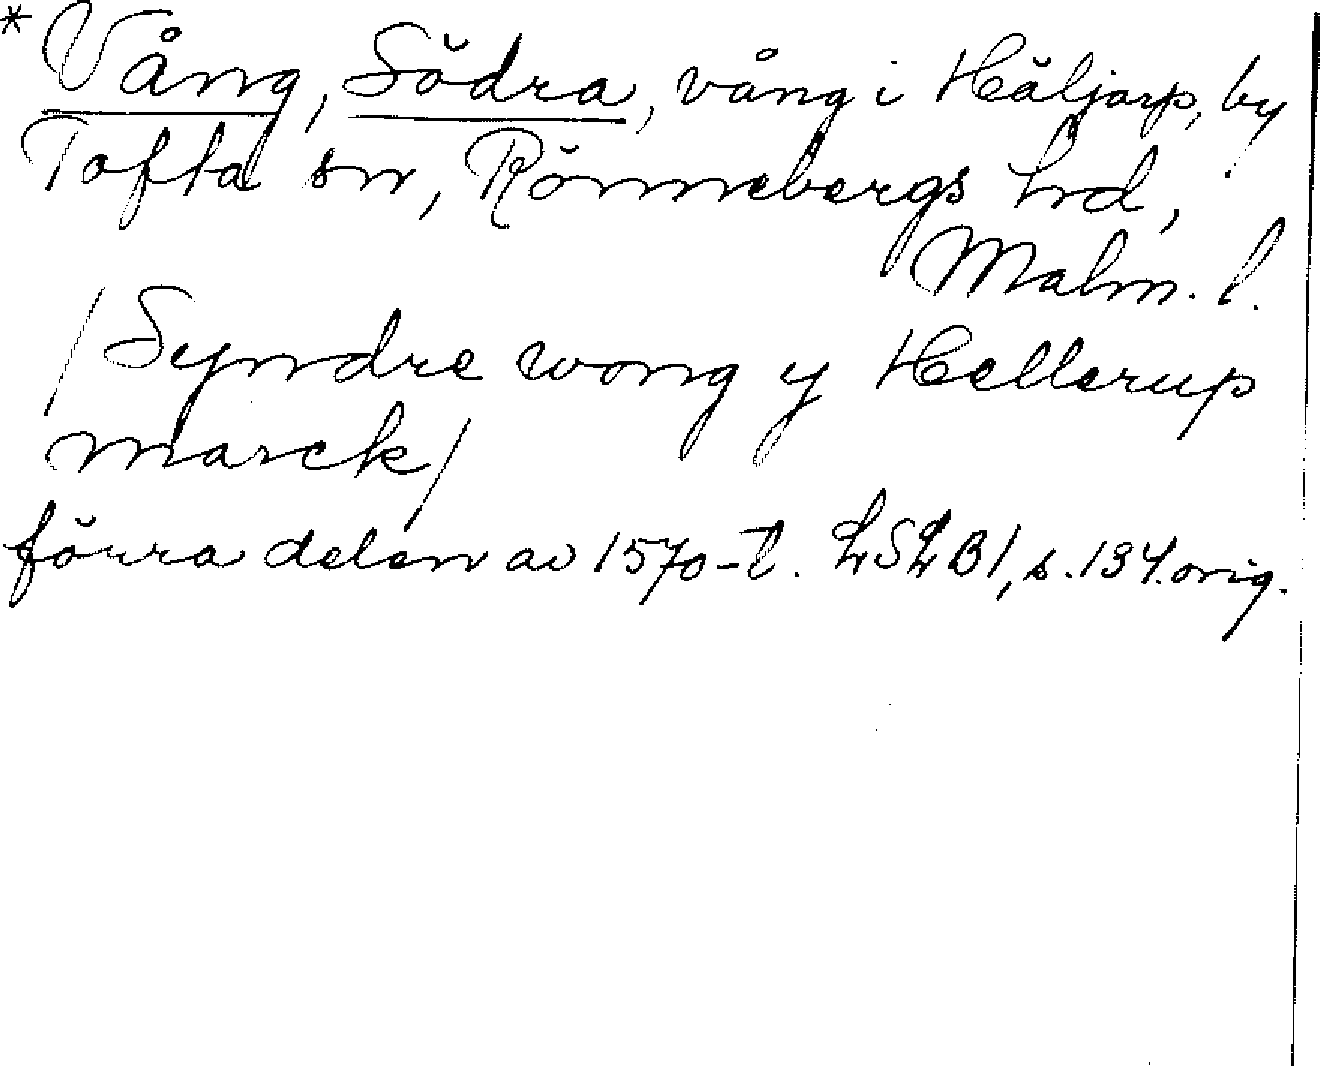 * Vång, Södra, vång i Häljarp, by
Tofta sn, Rönnebergs hd,
Malm. l.
/Syndre wong y Hellerup
marck/
förra delen av 1570-t. LSLB1, s. 134. orig.